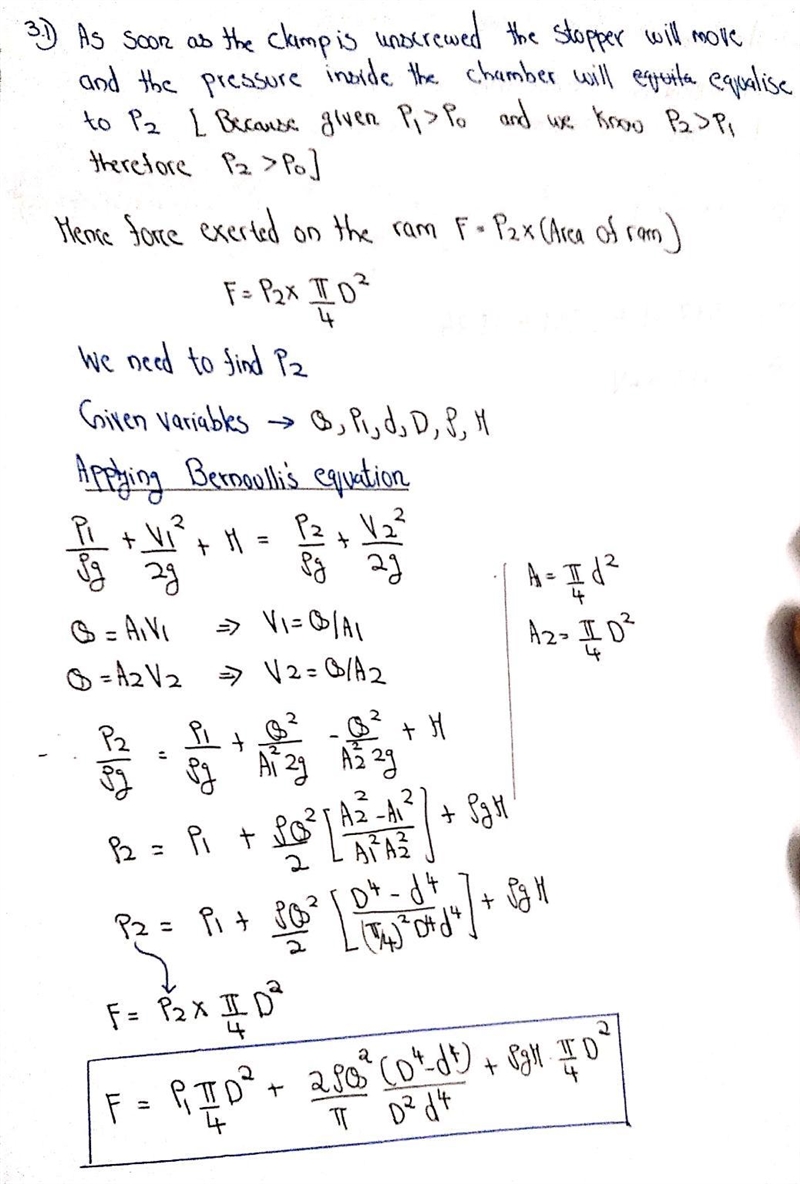 3.1) As soon as the clamp is unscrewed the stopper will move
and the pressure inside the chamber will equalise
to P₂ [ Because given P₁ > P₀ and we know P₂ > P₁
therefore P₂ > P₀ ]
Hence force exerted on the ram F = P₂ x (Area of ram)
F = P₂ x π/4 D²
We need to find P₂
Given variables → Q, P₁, d, D, ρ, H
Applying Bernoulli's equation
P₁/ρg + V₁²/2g + H = P₂/ρg + V₂²/2g
A = π/4 d²
Q = A₁V₁ ⇒ V₁ = Q/A₁
A₂ = π/4 D²
Q = A₂V₂ ⇒ V₂ = Q/A₂
P₂/ρg = P₁/ρg + Q²/A₁² 2g - Q²/A₂² 2g + H
P₂ = P₁ + ρQ²/2 [ A₂² - A₁² / A₁² A₂² ] + ρgH
P₂ = P₁ + ρQ²/2 [ D⁴ - d⁴ / (π/4)² D⁴ d⁴ ] + ρgH
F = P₂ x π/4 D²
F = P₁ π/4 D² + 2ρQ²/π (D⁴ - d⁴)/D² d⁴ + ρgH · π/4 D²